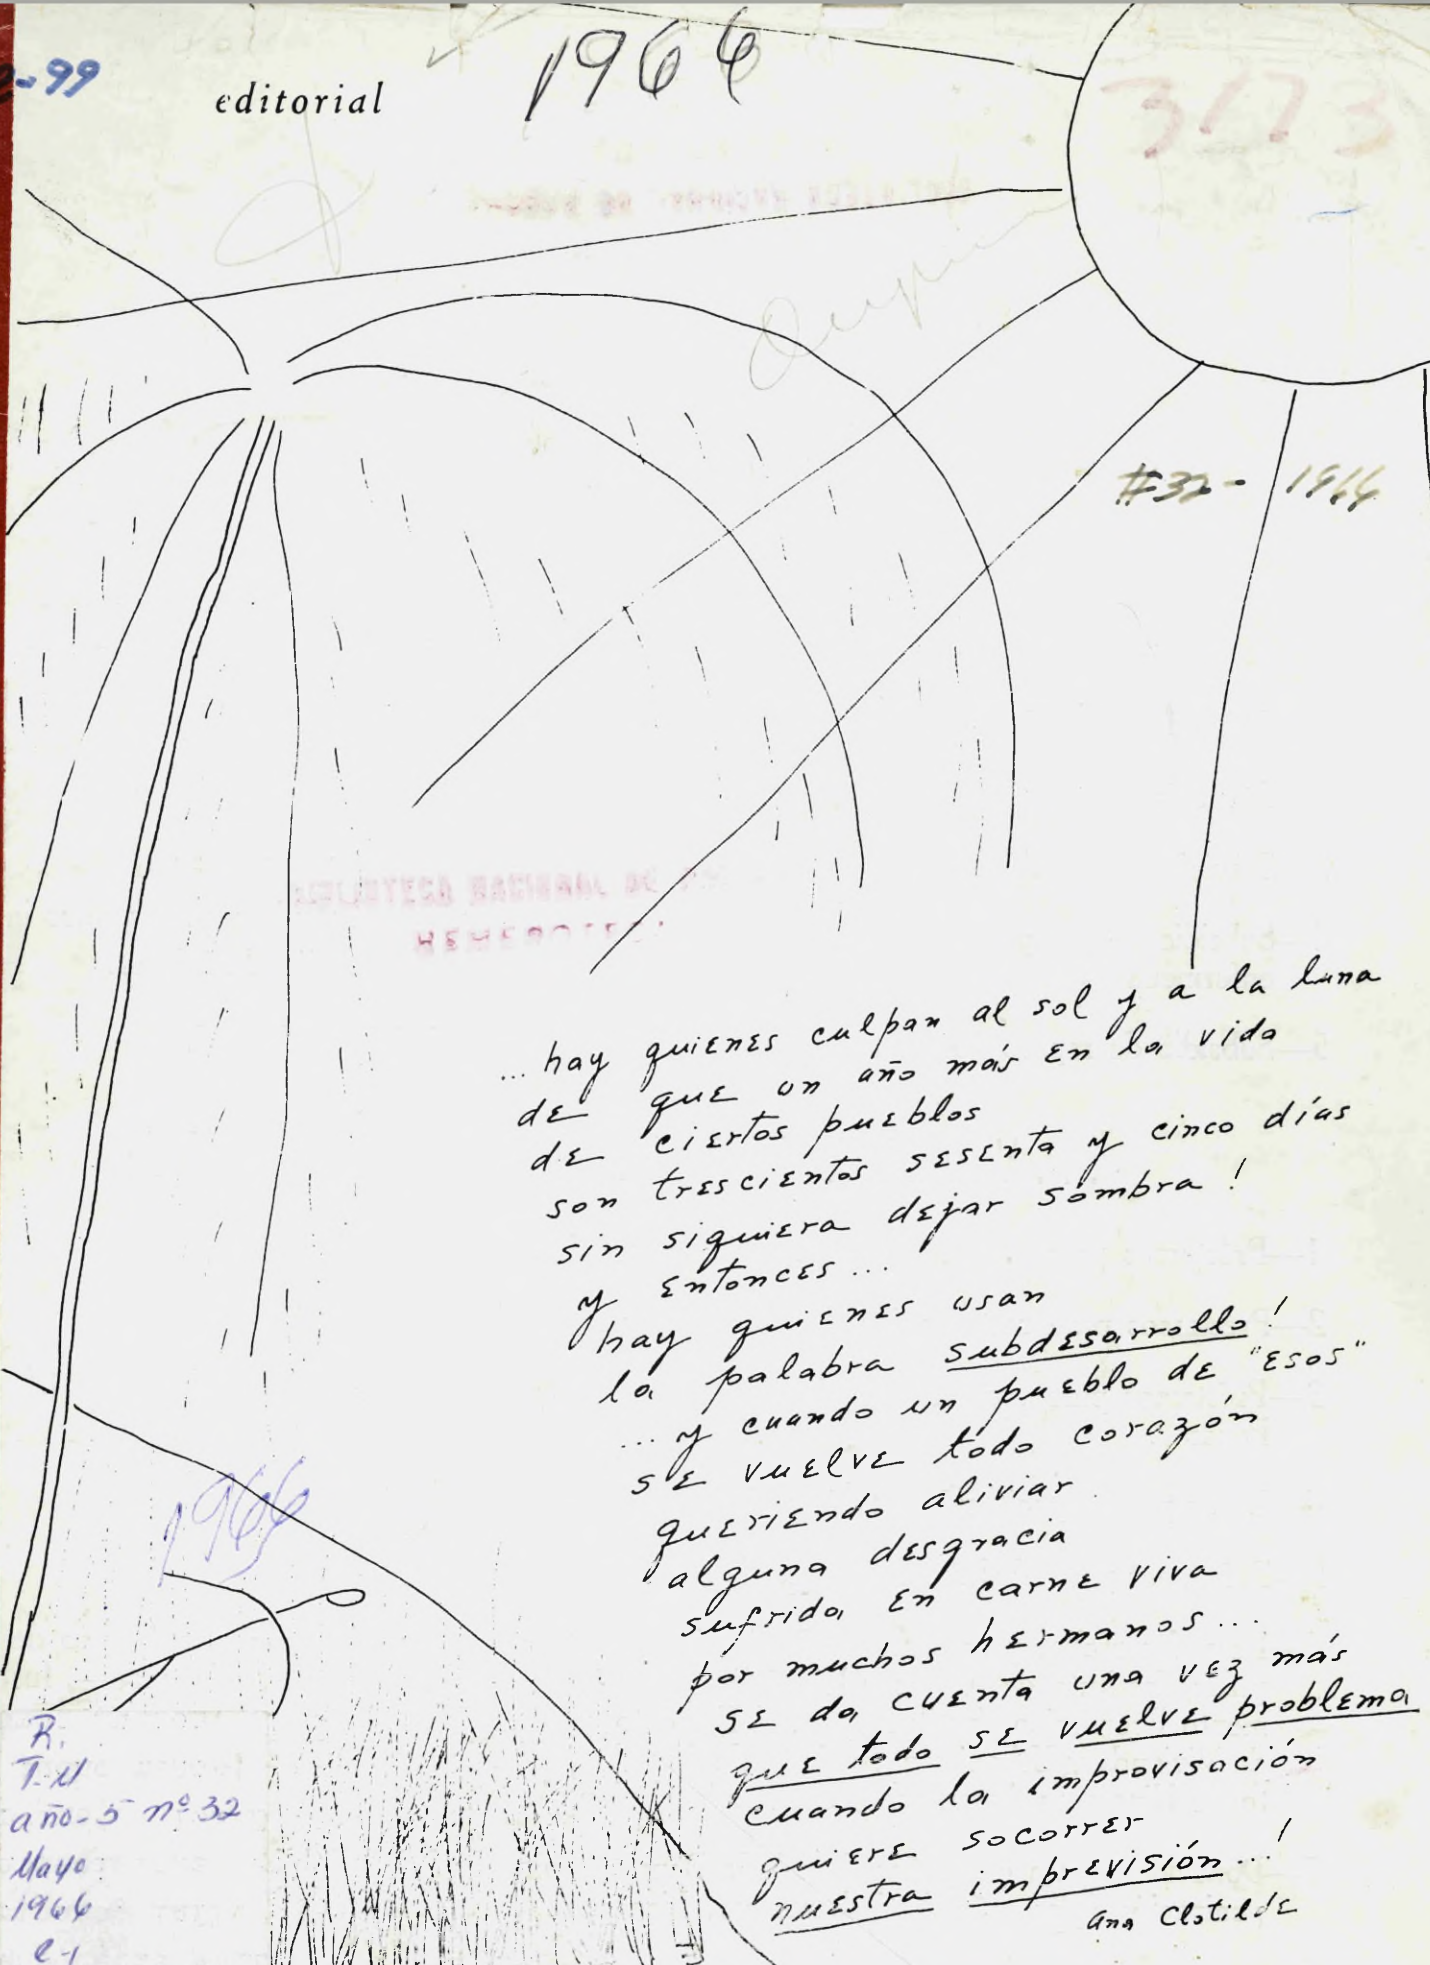 -99
editorial
1966
3173
#32- 1966
BIBLIOTECA NACIONAL DE
HEMEROTECA
...hay quienes culpan al sol y a la luna
de que un año más en la vida
de ciertos pueblos
son trescientos sesenta y cinco días
sin siquiera dejar sombra!
y entonces...
hay quienes usan
la palabra subdesarrollo!
...y cuando un pueblo de "esos"
se vuelve todo corazón
queriendo aliviar
alguna desgracia
sufrida en carne viva
por muchos hermanos...
se da cuenta una vez más
que todo se vuelve problema
cuando la improvisación
quiere socorrer
nuestra imprevisión...!
ana Clotilde
1966
R.
T-U
año-5 nº 32
Mayo
1966
e-1